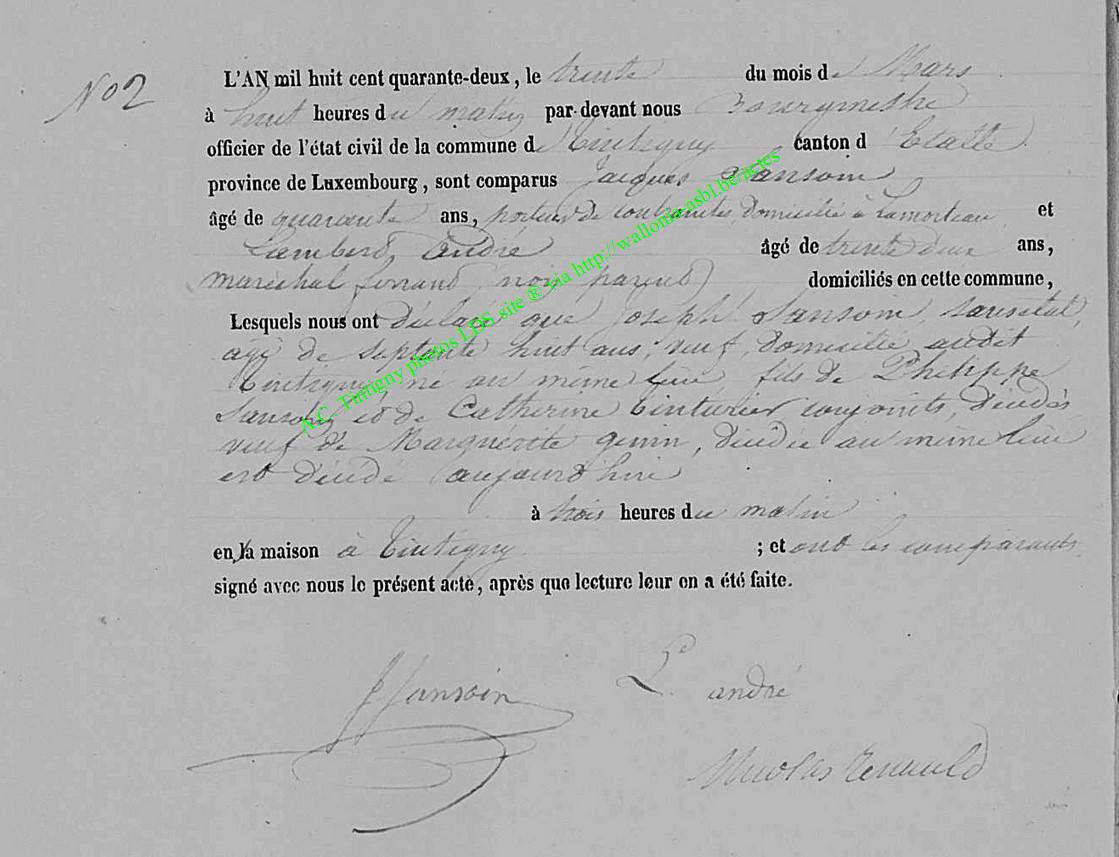 No 2
L'AN mil huit cent quarante-deux, le trente du mois de Mars
à huit heures du matin par-devant nous Bourgmestre
officier de l'état civil de la commune de Tintigny canton d'Etalle
province de Luxembourg, sont comparus Jacques Sansoin
âgé de quarante ans, porteur de contraintes domicilié à Lamorteau et
Lambert André âgé de trente deux ans,
maréchal ferrand non parend domiciliés en cette commune,
Lesquels nous ont déclaré que Joseph Sansoin
agé de septante huit ans, veuf, domicilié audit
Tintigny né au même lieu, fils de Philippe
Sansoin et de Catherine Tinturier conjoints, décédés
veuf de Marguérite ginin, décédée au même lieu
est décédé aujourd'hui
à trois heures du matin
en la maison à Tintigny ; et ont les comparants
signé avec nous le présent acte, après que lecture leur en a été faite.
A.C. Tintigny photos LDS site ® via http://wallonia-asbl.be/actes
J Sansoin
L. andré
Nicolas Renauld